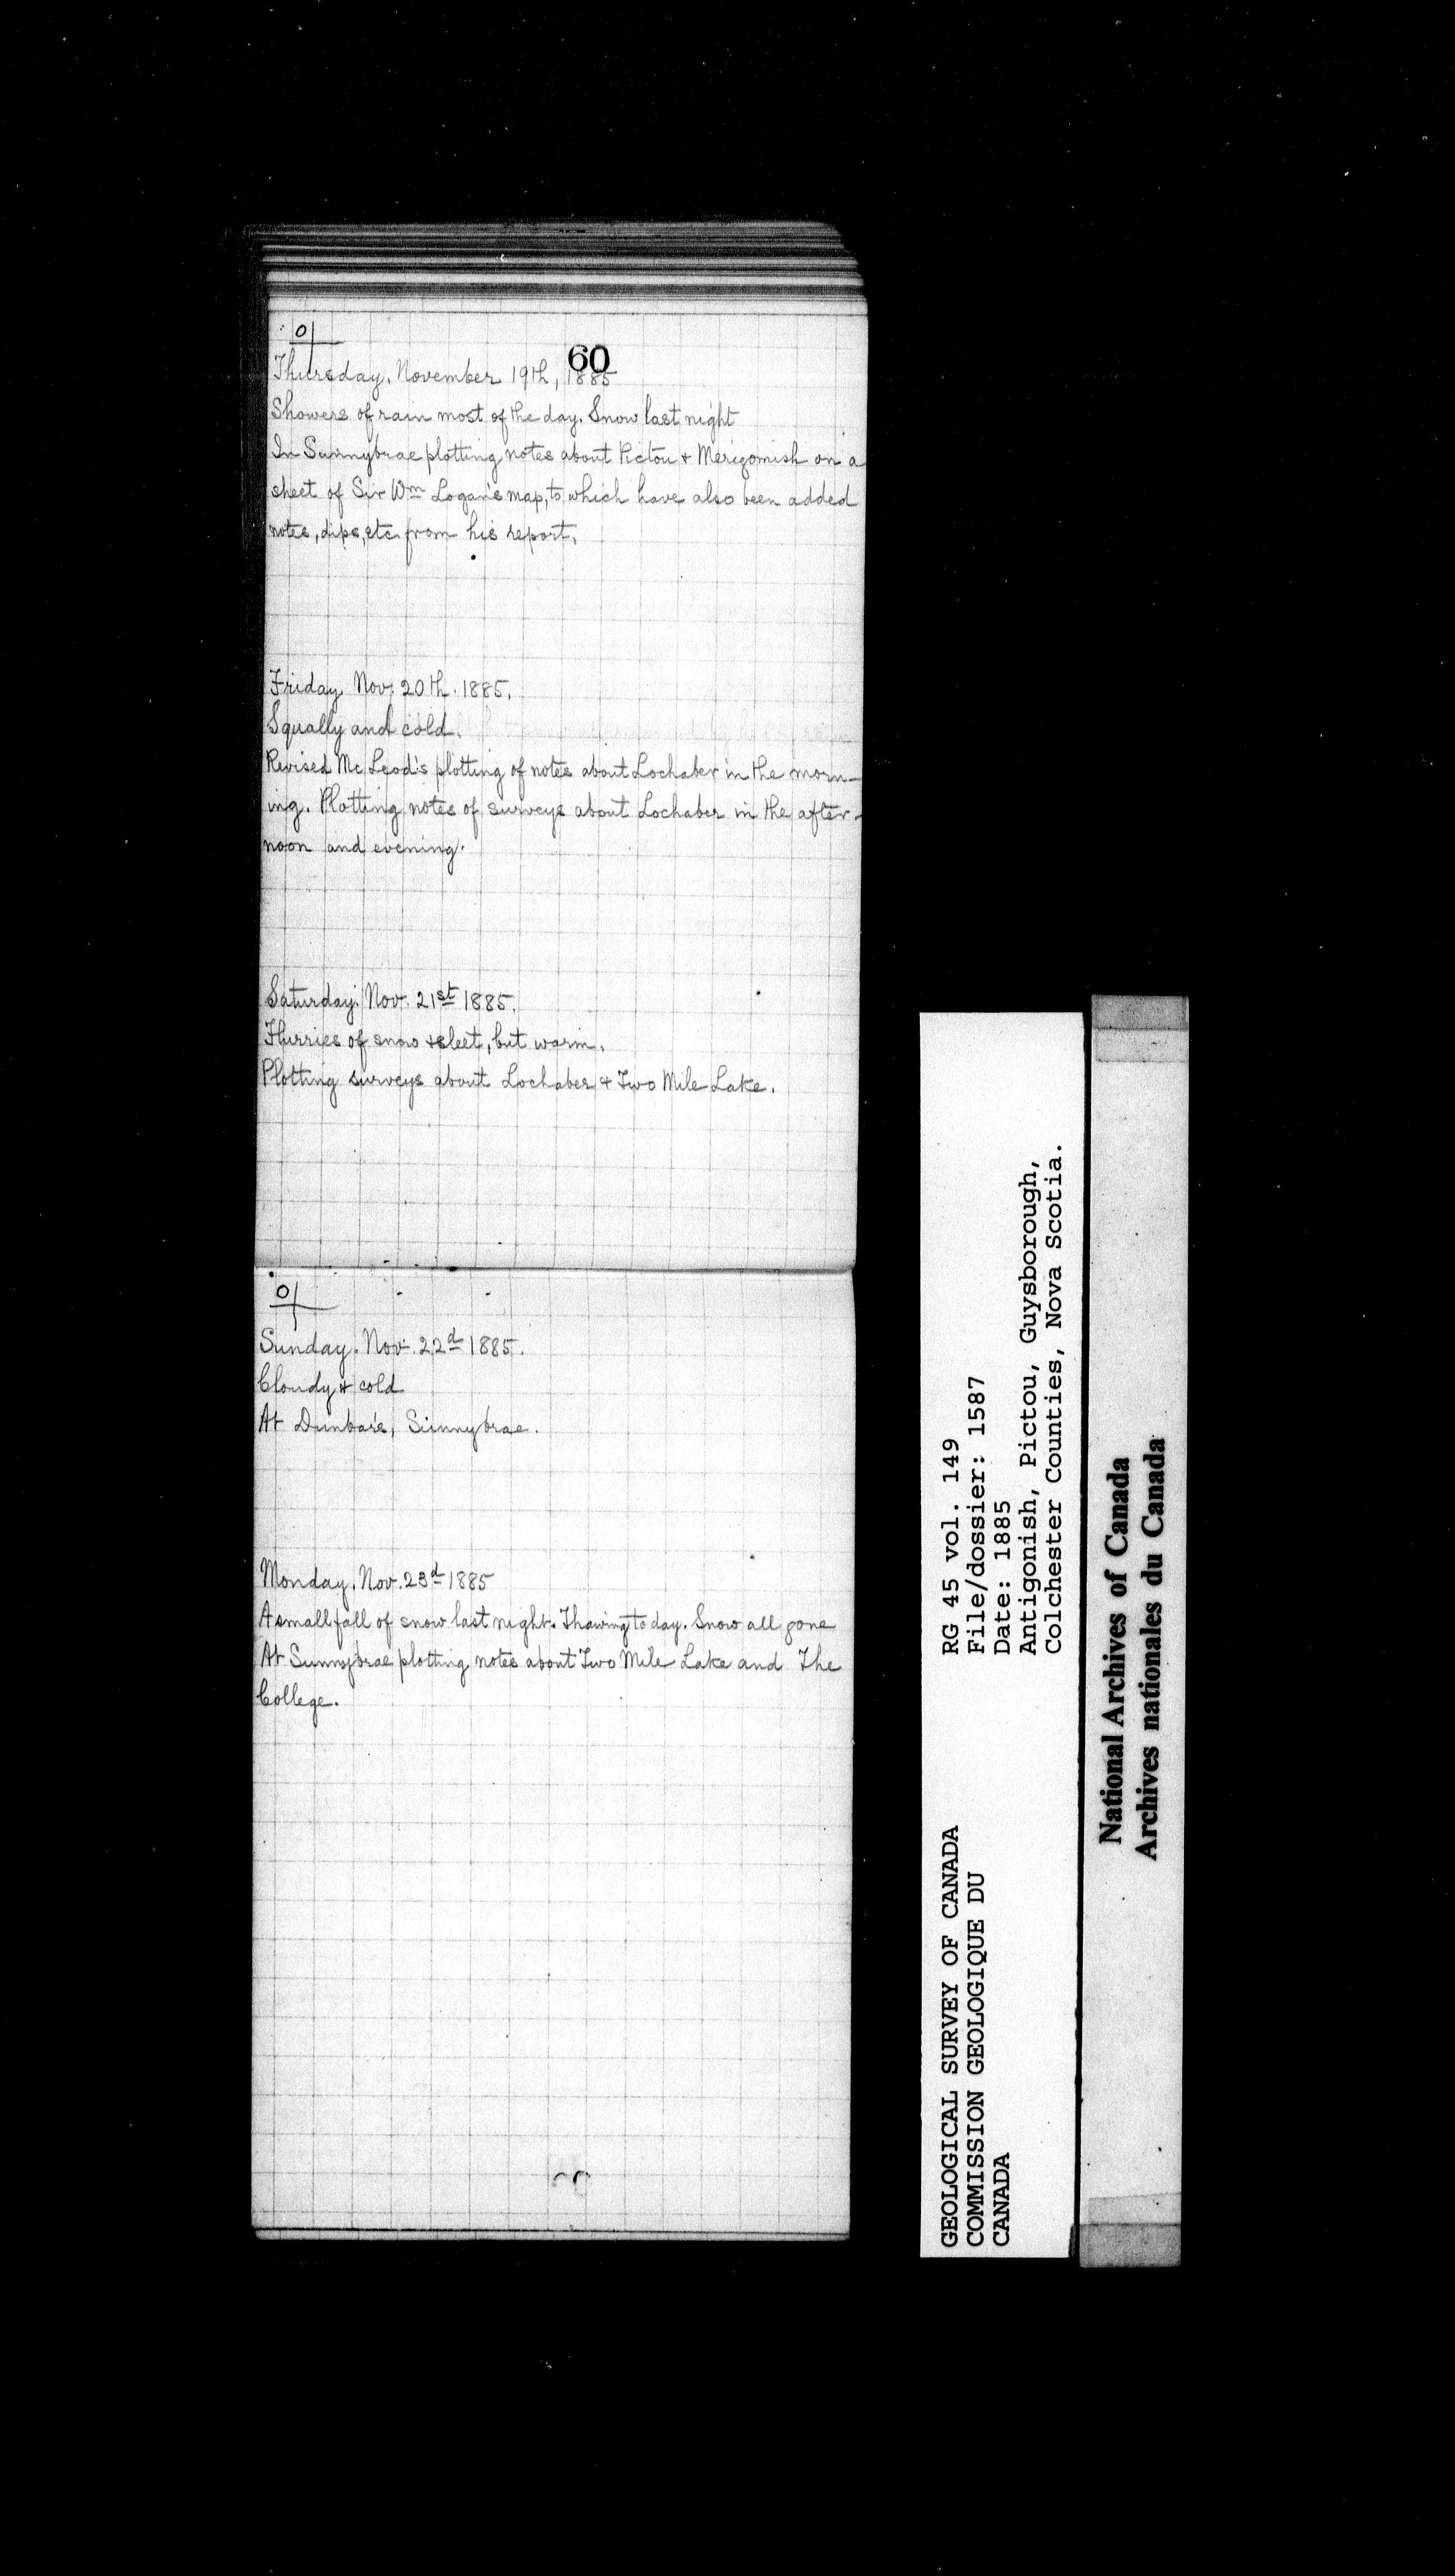 60
Thursday. November 19th, 1885
Showers of rain most of the day. Snow last night
In Sunnybrae plotting notes about Pictou + Merigomish on a
sheet of Sir Wm Logan's map, to which have also been added
notes, dips, etc. from his report.
Friday. Nov. 20th. 1885.
Squally and cold.
Revised McLeod's plotting of notes about Lochaber in the morn-
ing. Plotting notes of surveys about Lochaber in the after-
noon and evening.
Saturday. Nov. 21st 1885.
Flurries of snow + sleet, but warm.
Plotting surveys about Lochaber + Two Mile Lake.
Sunday. Nov. 22d 1885.
Cloudy + cold
At Dunbar's, Sunnybrae.
Monday. Nov. 23d 1885
A small fall of snow last night. Thawing to day. Snow all gone
At Sunnybrae plotting notes about Two Mile Lake and The
College.
GEOLOGICAL SURVEY OF CANADA
COMMISSION GEOLOGIQUE DU
CANADA
RG 45 vol. 149
File/dossier: 1587
Date: 1885
Antigonish, Pictou, Guysborough,
Colchester Counties, Nova Scotia.
National Archives of Canada
Archives nationales du Canada